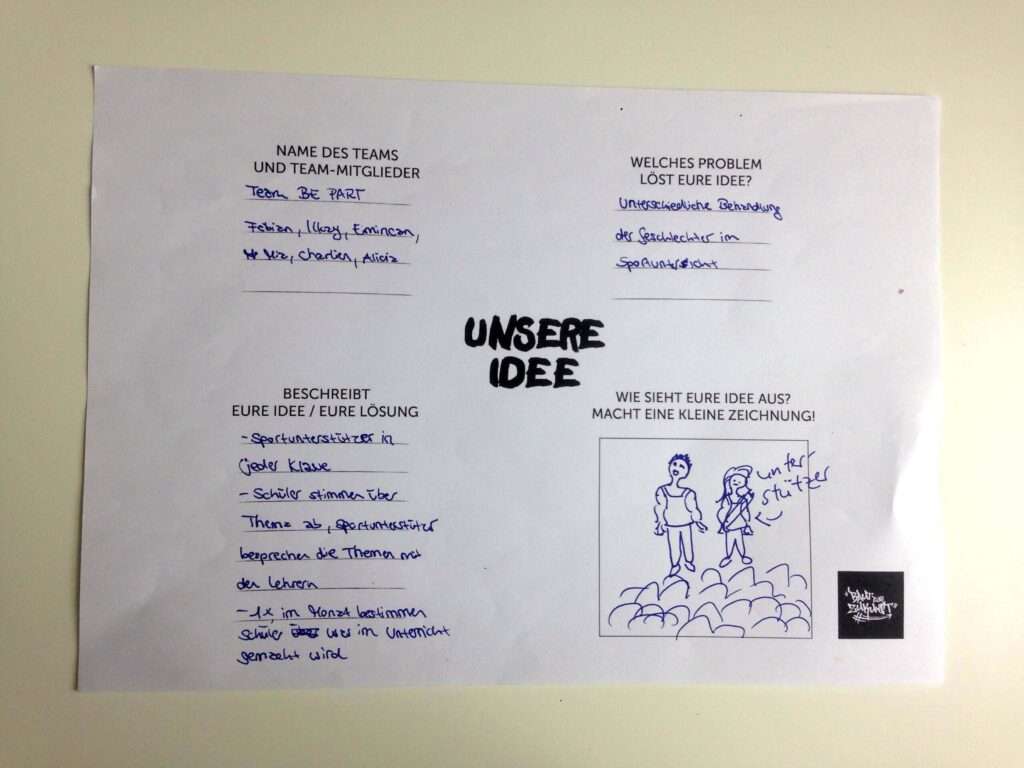 NAME DES TEAMS
UND TEAM-MITGLIEDER
Team BE PART
Fabian, Ilkay, Emincan,
Charlien, Alicia
WELCHES PROBLEM
LÖST EURE IDEE?
Unterschiedliche Behandlung
der Geschlechter im
Sportunterricht
UNSERE
IDEE
BESCHREIBT
EURE IDEE / EURE LÖSUNG
- Sportunterstützer in
jeder Klasse
- Schüler stimmen über
Thema ab, Sportunterstützer
besprechen die Themen mit
den Lehrern
- 1x im Monat bestimmen
Schüler was im Unterricht
gemacht wird
WIE SIEHT EURE IDEE AUS?
MACHT EINE KLEINE ZEICHNUNG!
unter-
stützer
ZUKUNFT